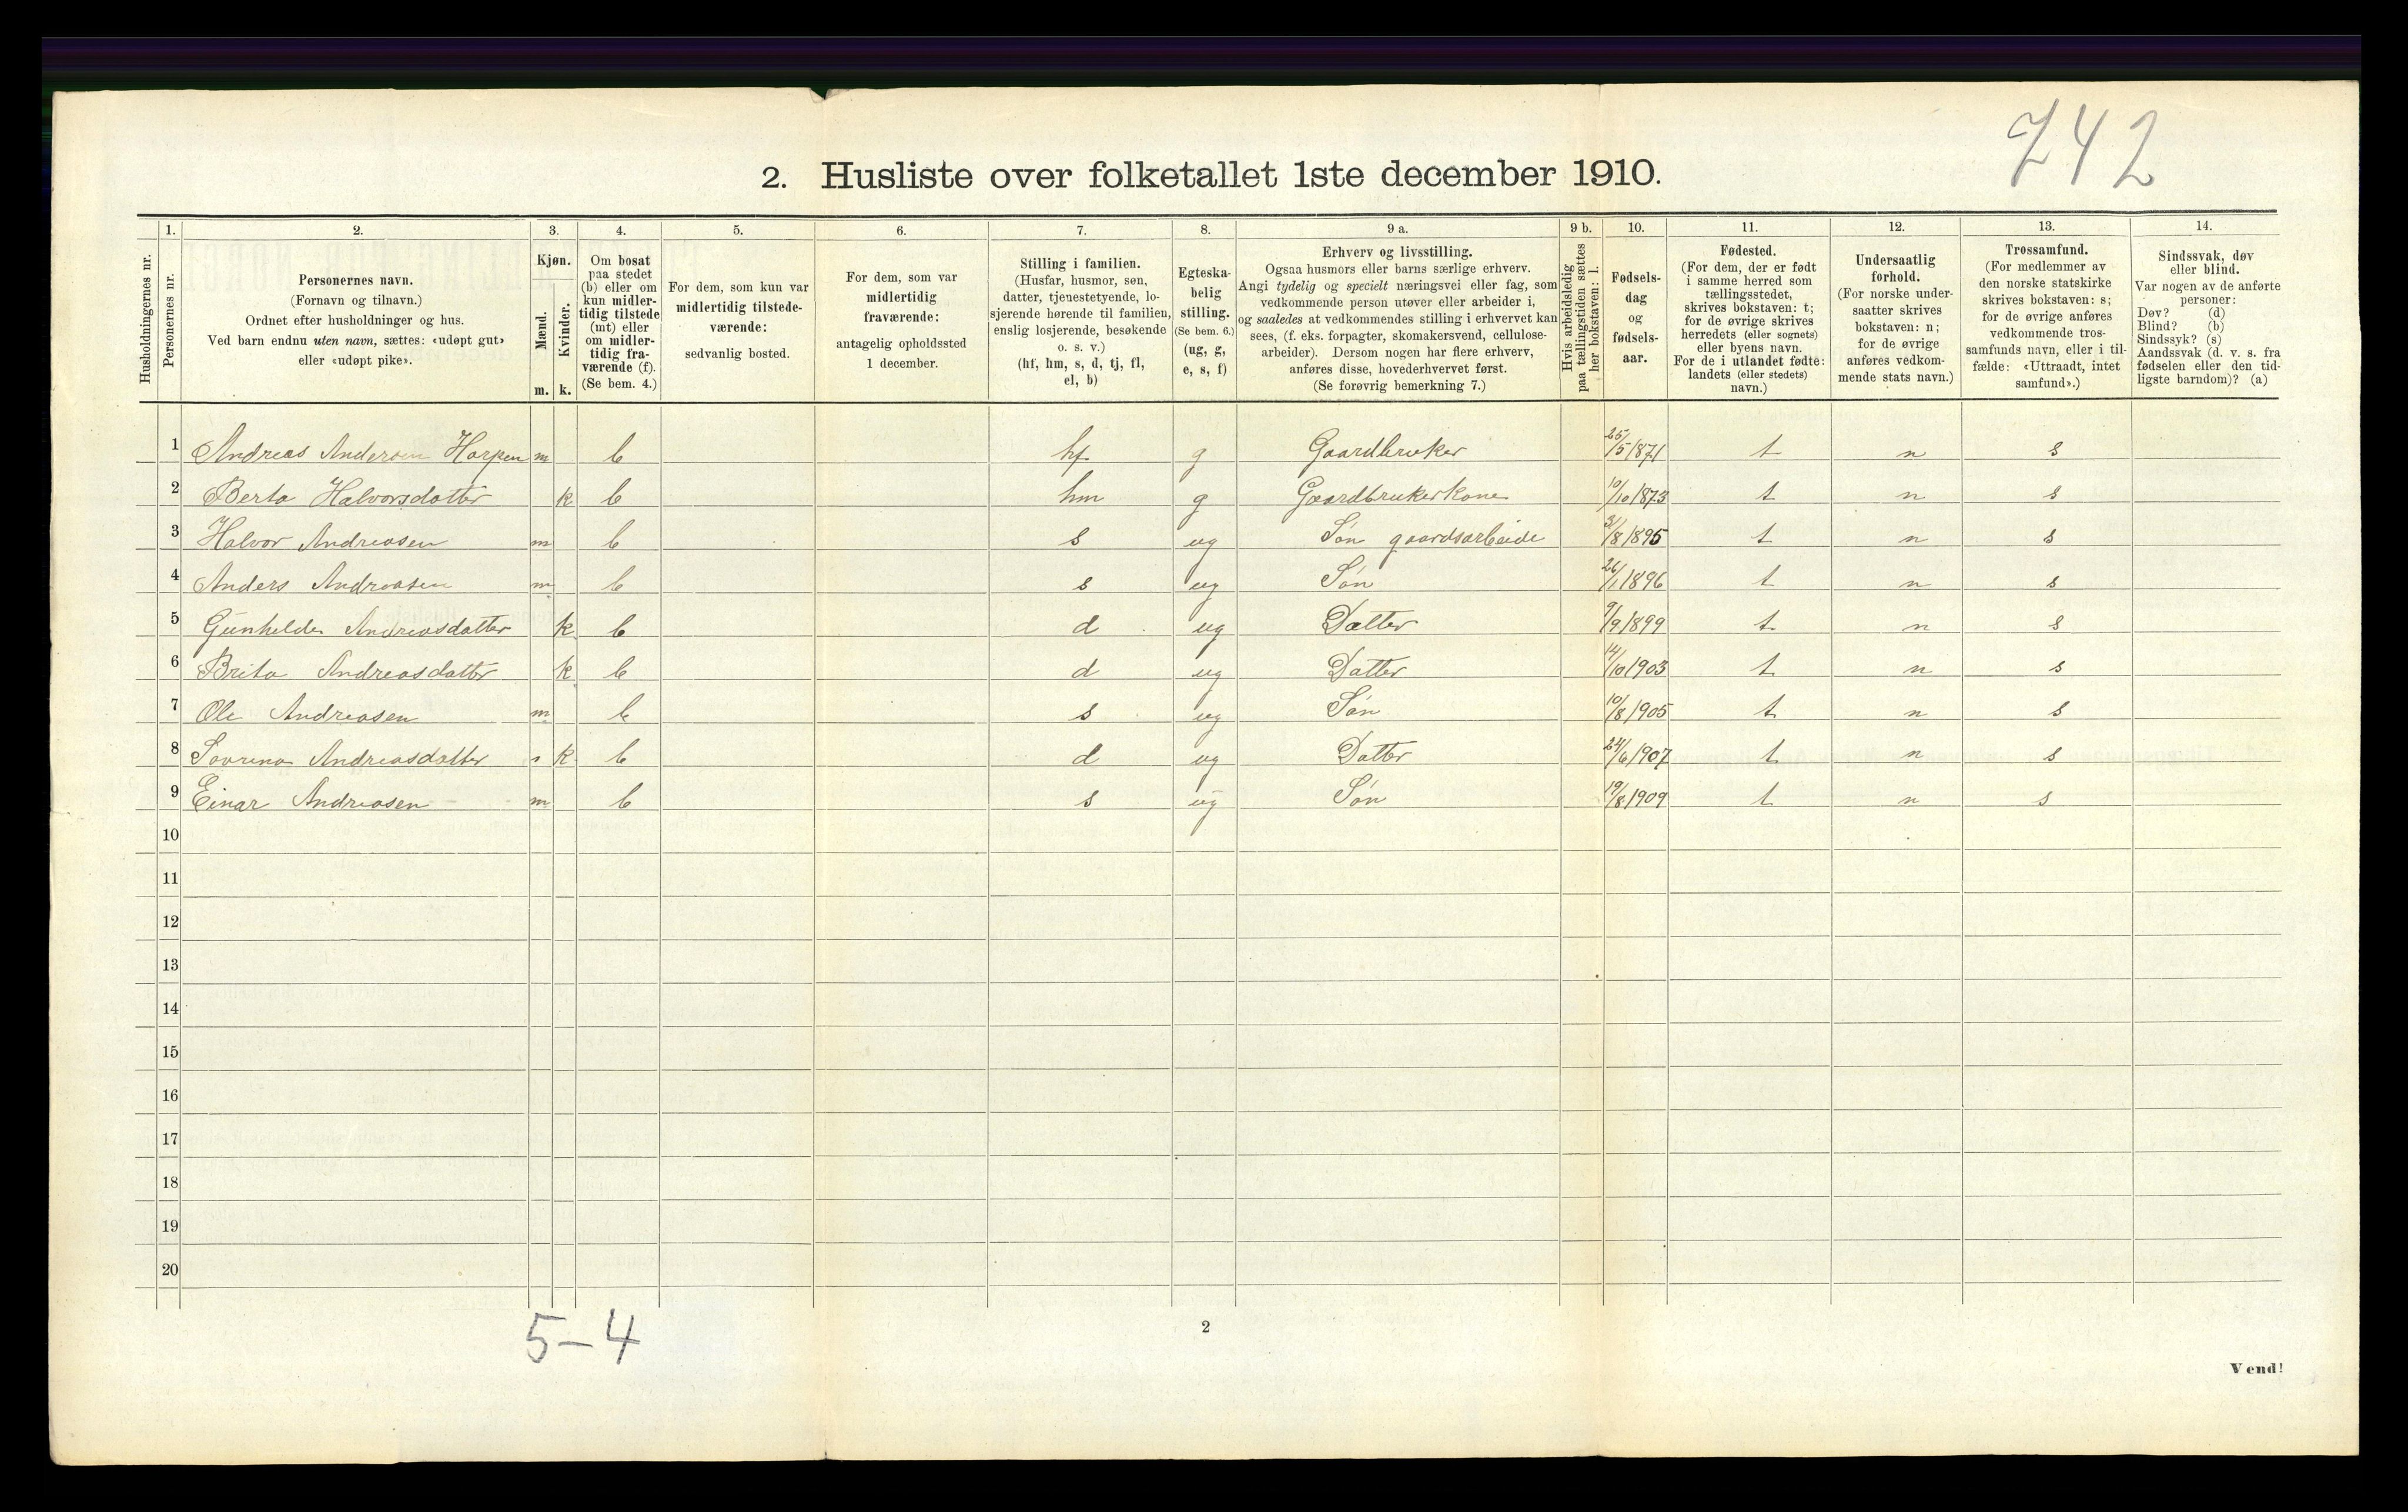 242
2. Husliste over folketallet 1ste december 1910.
1. 2. 3. 4. 5. 6. 7. 8. 9 a. 9 b. 10. 11. 12. 13. 14.
Husholdningernes nr.
Personernes nr.
Personernes navn.
(Fornavn og tilnavn.)
Ordnet efter husholdninger og hus.
Ved barn endnu uten navn, sættes: «udøpt gut»
eller «udøpt pike».
Kjøn.
Mænd.
m.
Kvinder.
k.
Om bosat
paa stedet
(b) eller om
kun midler-
tidig tilstede
(mt) eller
om midler-
tidig fra-
værende (f).
(Se bem. 4.)
For dem, som kun var
midlertidig tilstede-
værende:
sedvanlig bosted.
For dem, som var
midlertidig
fraværende:
antagelig opholdssted
1 december.
Stilling i familien.
(Husfar, husmor, søn,
datter, tjenestetyende, lo-
sjerende hørende til familien,
enslig losjerende, besøkende
o. s. v.)
(hf, hm, s, d, tj, fl,
el, b)
Egteska-
belig
stilling.
(Se bem. 6.)
(ug, g,
e, s, f)
Erhverv og livsstilling.
Ogsaa husmors eller barns særlige erhverv.
Angi tydelig og specielt næringsvei eller fag, som
vedkommende person utøver eller arbeider i,
og saaledes at vedkommendes stilling i erhvervet kan
sees, (f. eks. forpagter, skomakersvend, cellulose-
arbeider). Dersom nogen har flere erhverv,
anføres disse, hovederhvervet først.
(Se forøvrig bemerkning 7.)
Hvis arbeidsledig
paa tællingstiden sættes
her bokstaven: l.
Fødsels-
dag
og
fødsels-
aar.
Fødested.
(For dem, der er født
i samme herred som
tællingsstedet,
skrives bokstaven: t;
for de øvrige skrives
herredets (eller sognets)
eller byens navn.
For de i utlandet fødte:
landets (eller stedets)
navn.)
Undersaatlig
forhold.
(For norske under-
saatter skrives
bokstaven: n;
for de øvrige
anføres vedkom-
mende stats navn.)
Trossamfund.
(For medlemmer av
den norske statskirke
skrives bokstaven: s;
for de øvrige anføres
vedkommende tros-
samfunds navn, eller i til-
fælde: «Uttraadt, intet
samfund».)
Sindssvak, døv
eller blind.
Var nogen av de anførte
personer:
Døv? (d)
Blind? (b)
Sindssyk? (s)
Aandssvak (d. v. s. fra
fødselen eller den tid-
ligste barndom)? (a)
1 Andreas Andersen Harpen m b hf g Gaardbruker 25/5 1871 t n s
2 Berta Halvorsdatter k b hm g Gaardbrukerkone 10/10 1873 t n s
3 Halvor Andreasen m b s ug Søn gaardsarbeide /8 1895 t n s
4 Anders Andreasen m b s ug Søn 26/1 1896 t n s
5 Gunhilde Andreasdatter k b d ug Datter 9/9 1899 t n s
6 Brita Andreasdatter k b d ug Datter 14/10 1903 t n s
7 Ole Andreasen m b s ug Søn 10/8 1905 t n s
8 Sovrena Andreasdatter k b d ug Datter 24/6 1907 t n s
9 Einar Andreasen m b s ug Søn 19/8 1909 t n s
10
11
12
13
14
15
16
17
18
19
20
5-4
2
Vend!